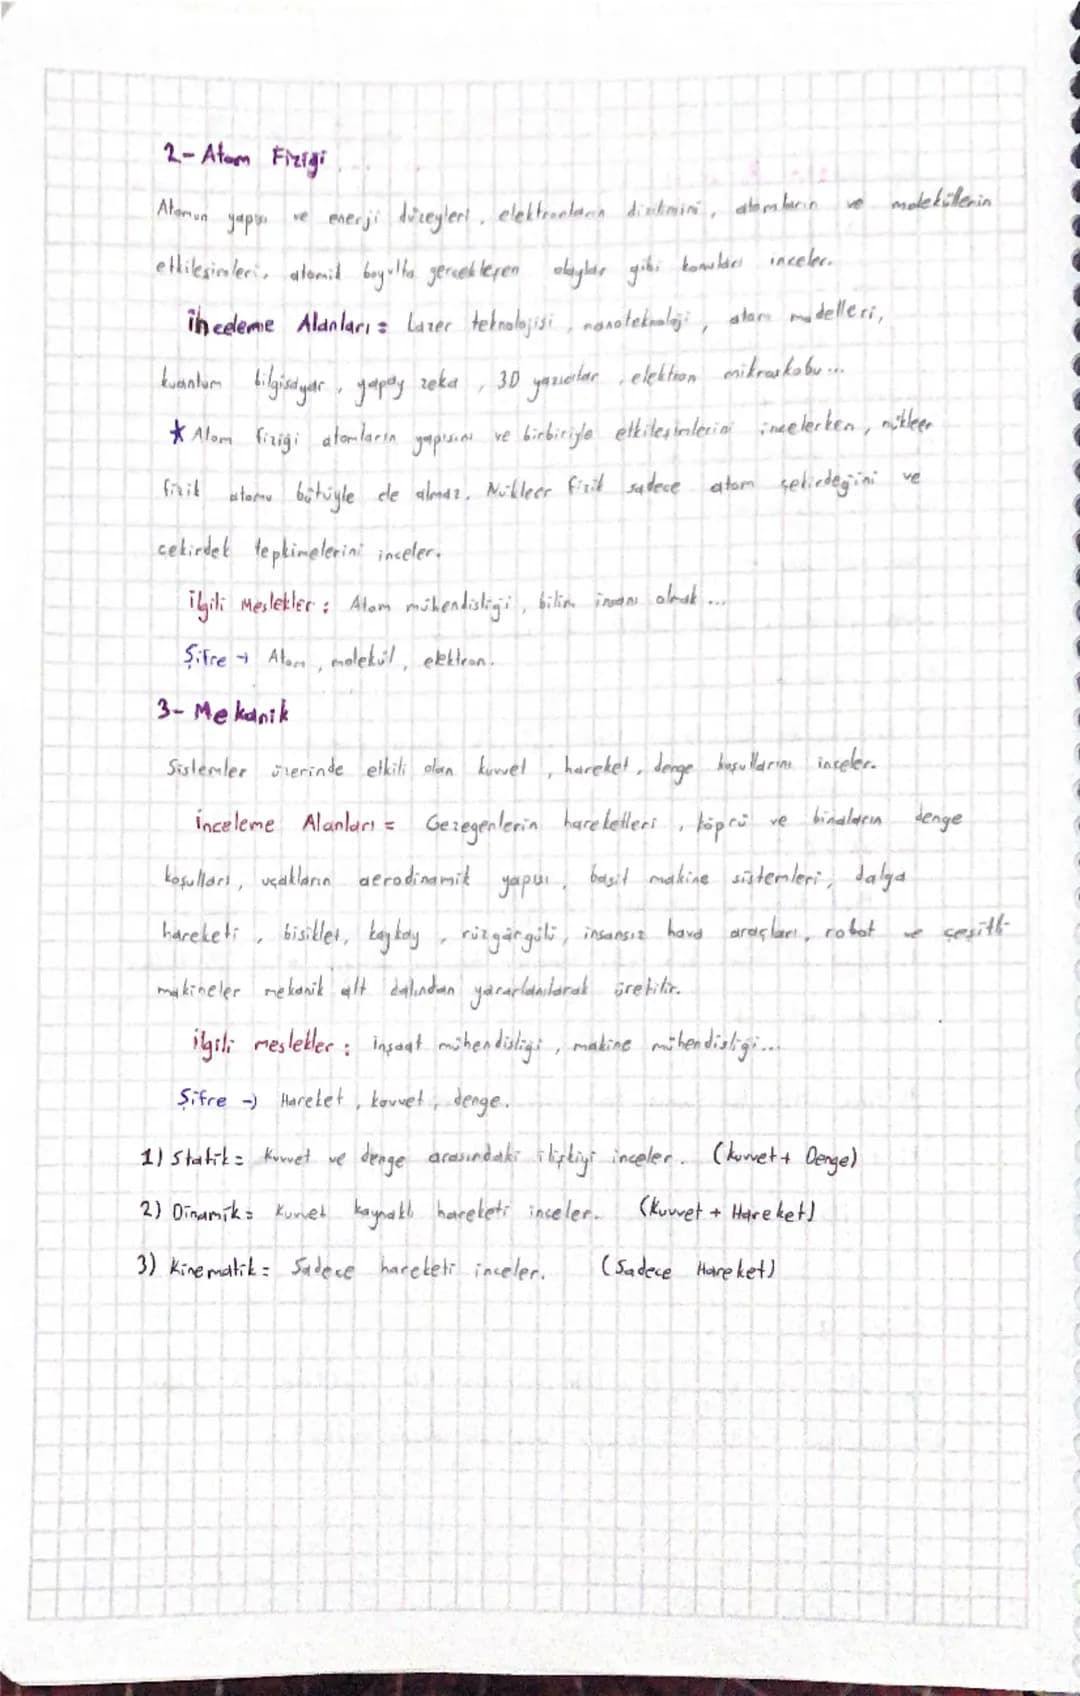 2- Atom Fiziği
Atomun yapısı ve enerji düzeyleri, elektronların dizilimini, atomların ve moleküllerin
etkileşimleri, atomik boyutta gerçekleşen olaylar gibi konuları inceler.
İnceleme Alanları = Lazer teknolojisi, nanoteknoloji, atom modelleri,
kuantum bilgisayar, yapay zeka, 3D yazıcılar, elektron mikroskobu...
* Atom fiziği atomların yapısını ve birbiriyle etkileşimlerini incelerken, nükleer
fizik atomu bütüyle ele almaz. Nükleer fizik sadece atom çekirdeğini ve
çekirdek tepkimelerini inceler.
İlgili Meslekler : Atom mühendisliği, bilim insanı olmak ...
Şifre → Atom, molekül, elektron.
3- Mekanik
Sistemler üzerinde etkili olan kuvvet, hareket, denge koşullarını inceler.
İnceleme Alanları = Gezegenlerin hareketleri, köprü ve binaların denge
koşulları, uçakların aerodinamik yapısı, basit makine sistemleri, dalga
hareketi, bisiklet, kaykay, rüzgârgülü, insansız hava araçları, robot ve çeşitli
makineler mekanik alt dalından yararlanılarak üretilir.
İlgili meslekler : inşaat mühendisliği, makine mühendisliği...
Şifre → Hareket, kuvvet, denge.
1) Statik = Kuvvet ve denge arasındaki ilişkiyi inceler. (kuvvet + Denge)
2) Dinamik = Kuvvet kaynaklı hareketi inceler. (Kuvvet + Hareket)
3) Kinematik = Sadece hareketi inceler. (Sadece Hareket)